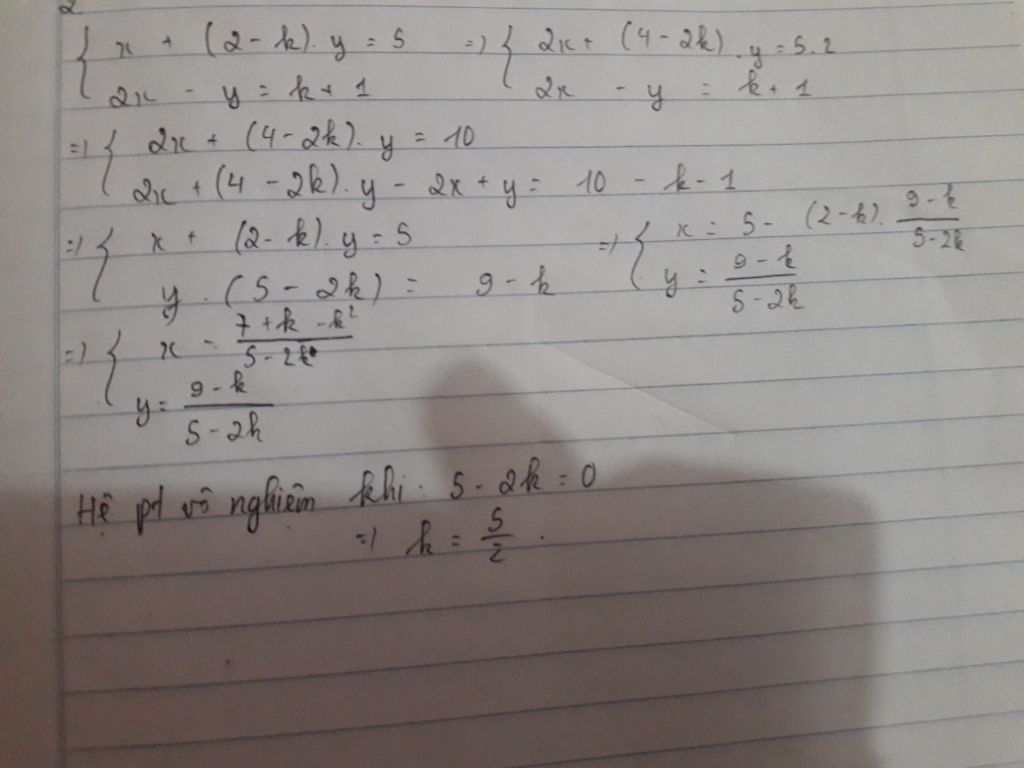 2.
{ x + (2 - k). y = 5 => { 2x + (4 - 2k) . y = 5.2
2x - y = k + 1 2x - y = k + 1
=> { 2x + (4 - 2k). y = 10
2x + (4 - 2k). y - 2x + y = 10 - k - 1
=> { x + (2 - k). y = 5 => { x = 5 - (2 - k). \frac{9 - k}{5 - 2k}
y . (5 - 2k) = 9 - k y = \frac{9 - k}{5 - 2k}
=> { x = \frac{7 + k - k^2}{5 - 2k}
y = \frac{9 - k}{5 - 2k}
Hệ pt vô nghiệm khi: 5 - 2k = 0
=> k = \frac{5}{2} .